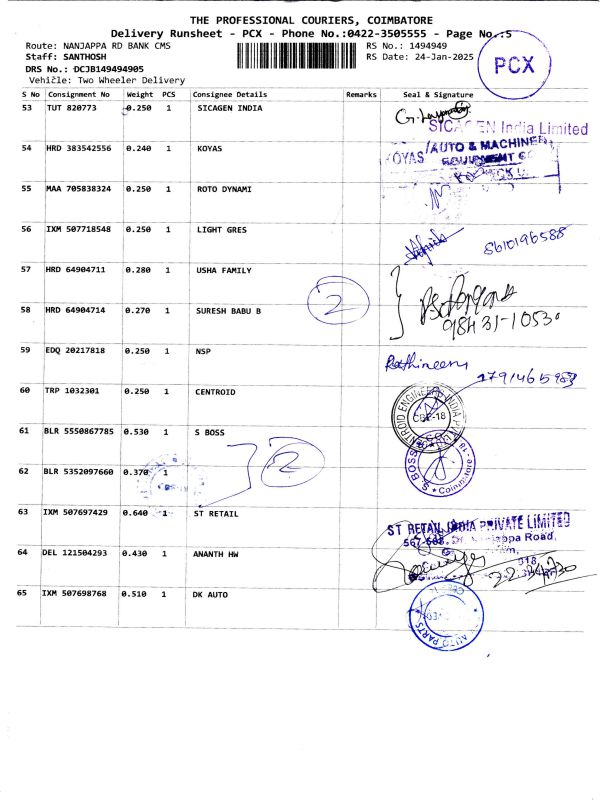 THE PROFESSIONAL COURIERS, COIMBATORE
Delivery Runsheet - PCX - Phone No.:0422-3505555 - Page No.:5
Route: NANJAPPA RD BANK CMS RS No.: 1494949
Staff: SANTHOSH RS Date: 24-Jan-2025
DRS No.: DCJB149494905
Vehicle: Two Wheeler Delivery
PCX
S No Consignment No Weight PCS Consignee Details Remarks Seal & Signature
53 TUT 820773 0.250 1 SICAGEN INDIA
SICAGEN India Limited
54 HRD 383542556 0.240 1 KOYAS
KOYAS AUTO & MACHINERY
EQUIPMENT
55 MAA 705838324 0.250 1 ROTO DYNAMI
56 IXM 507718548 0.250 1 LIGHT GRES
8610196588
57 HRD 64904711 0.280 1 USHA FAMILY
2
58 HRD 64904714 0.270 1 SURESH BABU B
98431-1053
59 EDQ 20217818 0.250 1 NSP
Rathineem
60 TRP 1032301 0.250 1 CENTROID
CENTROID ENGINEERS INDIA PVT
CBE-18
61 BLR 5550867785 0.530 1 S BOSS
S BOSS
Coimbatore
2
62 BLR 5352097660 0.370 1
63 IXM 507697429 0.640 1 ST RETAIL
ST RETAIL INDIA PRIVATE LIMITED
Road,
64 DEL 121504293 0.430 1 ANANTH HW
65 IXM 507698768 0.510 1 DK AUTO
AUTO PARTS